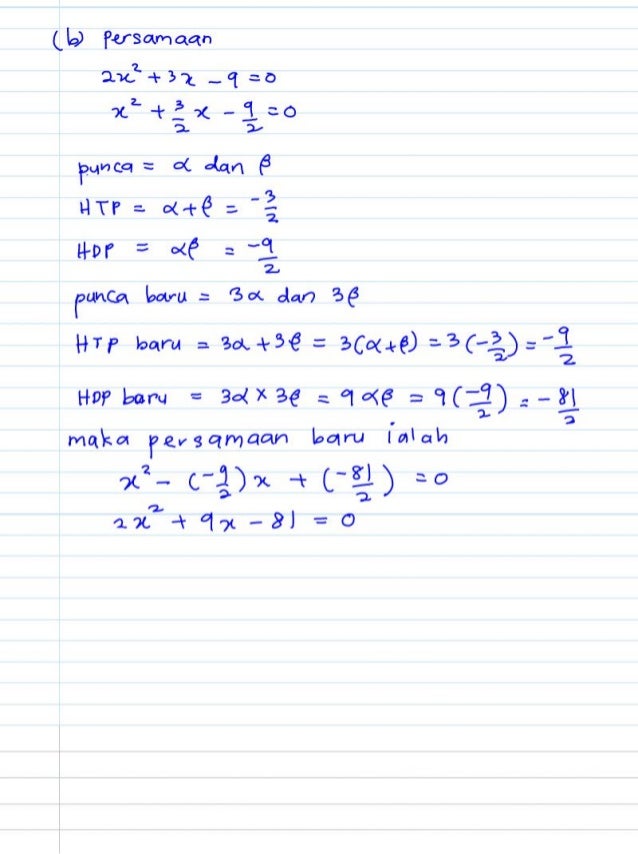 (b) persamaan
2x² + 3x - 9 = 0
x² + 3/2 x - 9/2 = 0
punca = α dan β
HTP = α+β = -3/2
HDP = αβ = -9/2
punca baru = 3α dan 3β
HTP baru = 3α + 3β = 3(α+β) = 3(-3/2) = -9/2
HDP baru = 3α × 3β = 9αβ = 9(-9/2) = -81/2
maka persamaan baru ialah
x² - (-9/2)x + (-81/2) = 0
2x² + 9x - 81 = 0